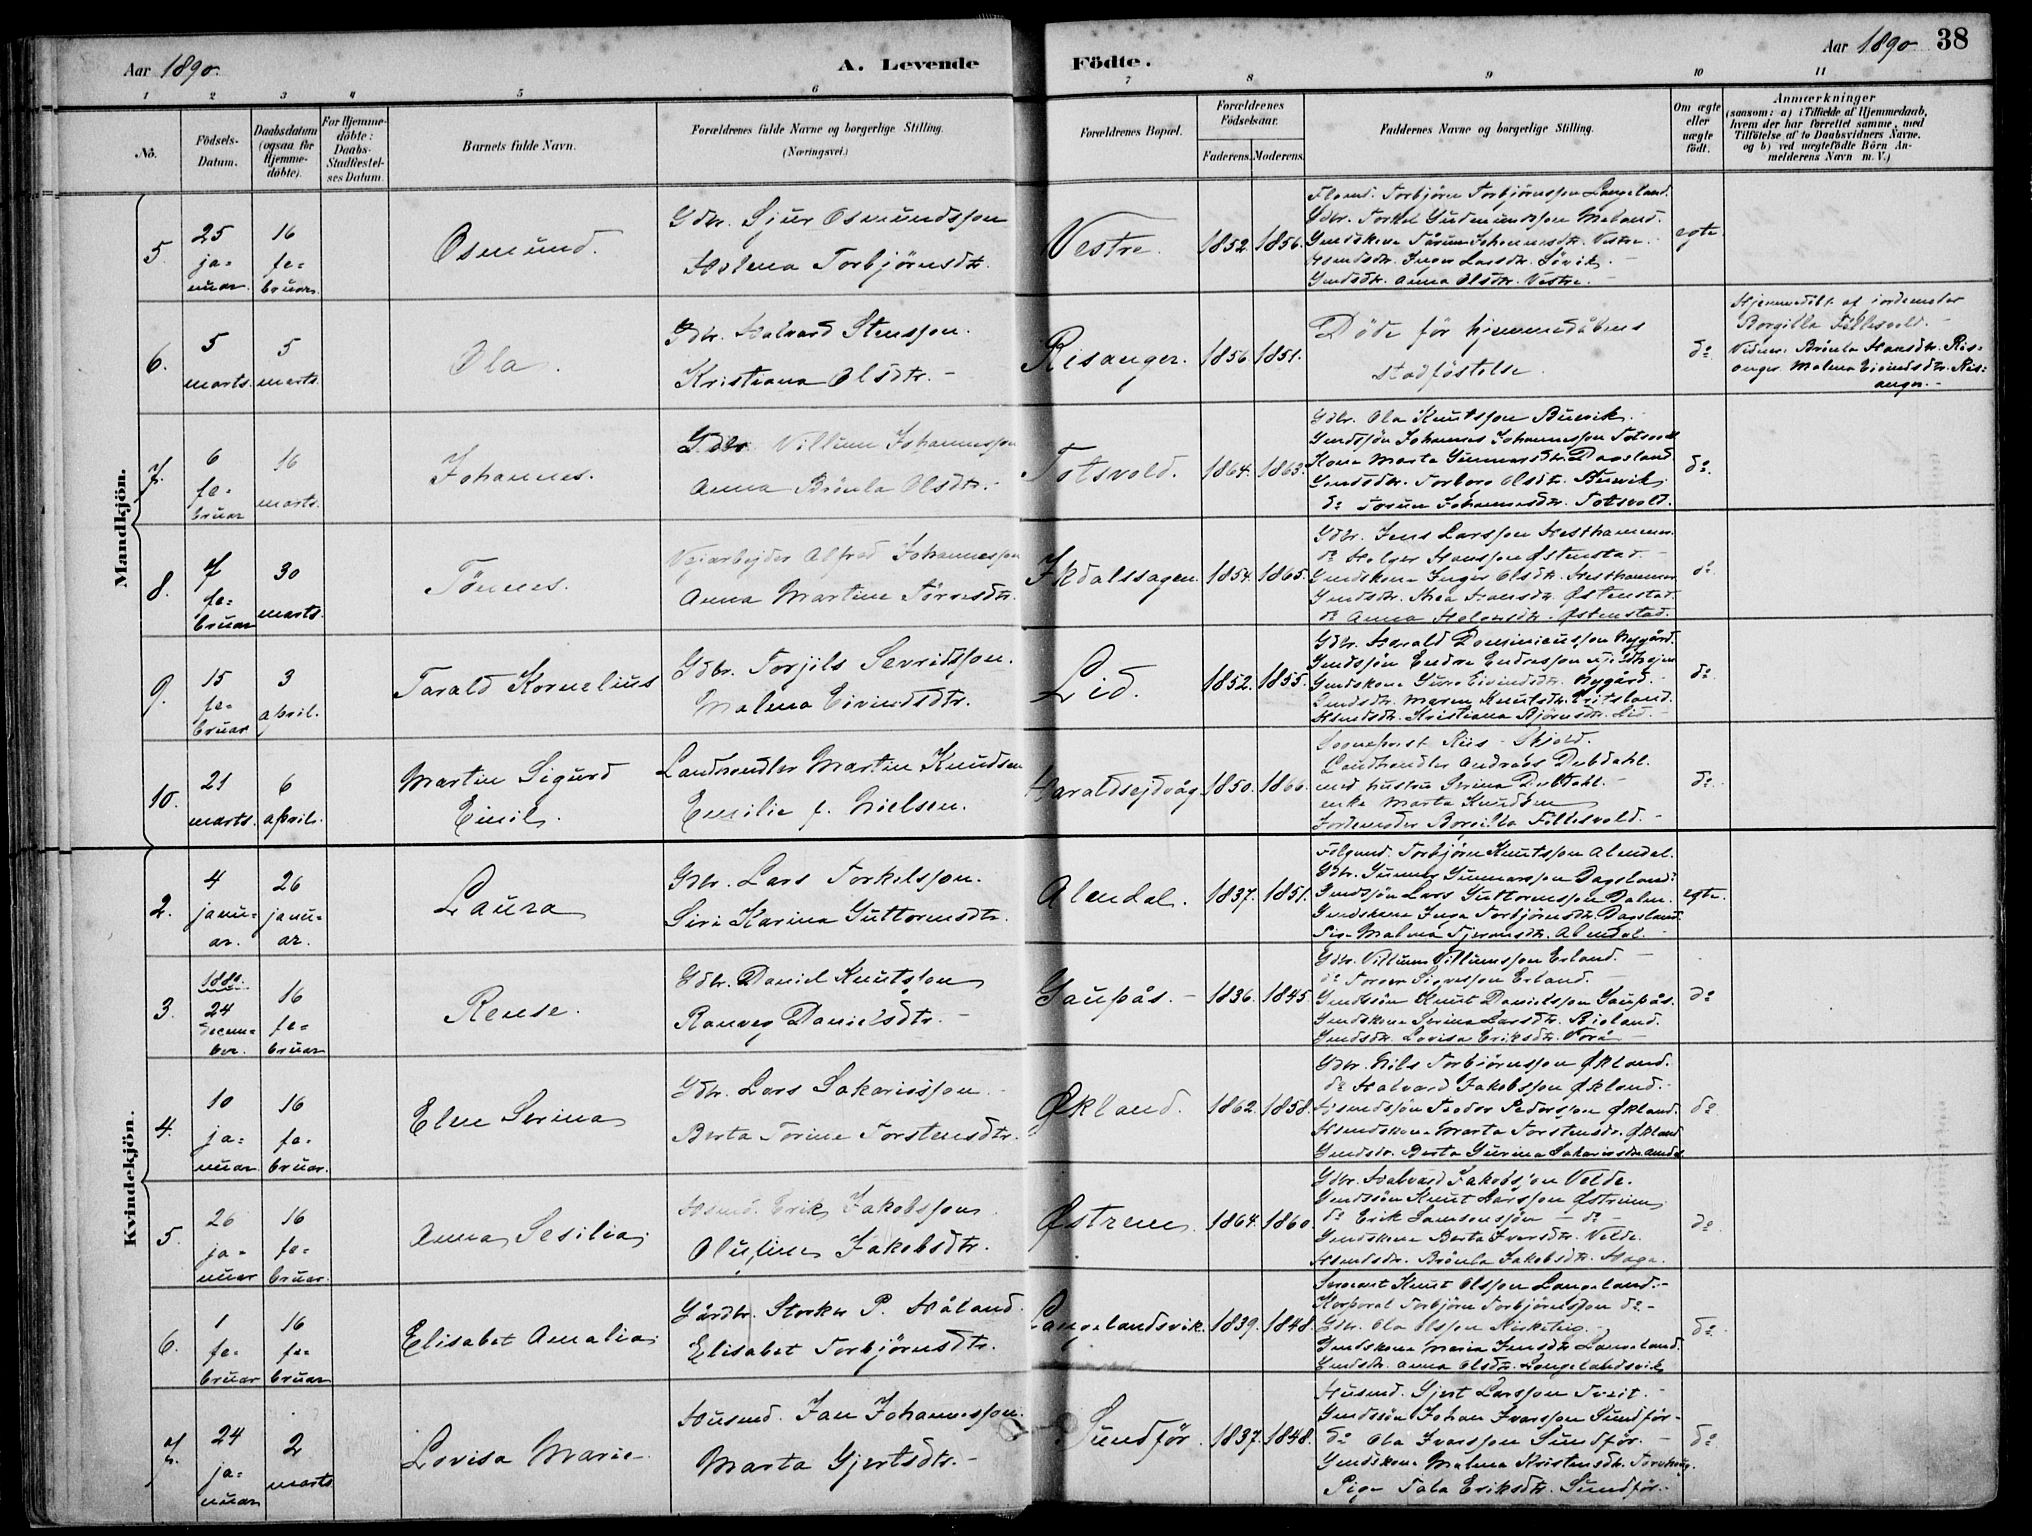 Aar 1890.
A. Levende
Födte.
Aar 1890
38
1 2 3 4 5 6 7 8 9 10 11
No.
Födsels-Datum.
Daabsdatum (ogsaa for Hjemme-döbte).
For Hjemme-döbte: Daabs-Stadfæstel-ses Datum.
Barnets fulde Navn.
Forældrenes fulde Navne og borgerlige Stilling. (Næringsvei.)
Forældrenes Bopæl.
Forældrenes Födselsaar.
Faderens. Moderens.
Faddernes Navne og borgerlige Stilling.
Om ægte eller uægte födt.
Anmærkninger
(saasom: a) i Tilfælde af Hjemmedaab, hvem der har forrettet samme, med Tilföielse af to Daabsvidners Navne, og b) ved uægtefödte Börn An-melderens Navn m. V.)
Mandkjön.
5.
25 ja-nuar.
16 fe-bruar.
Osmund.
Gdbr. Sjur Osmundsson
Malena Torbjørnsdtr.
Vestre.
1852. 1856.
Torbjörn Torbjörnsson Langeland.
Gdbr. Torkel Gudmundsson Meland.
Gmdskone Johannesdtr. Vestre.
Inger Larsdtr.
Gmdsdtr. Anna Olsdtr. Vestre.
egte.
6.
5 marts.
5 marts.
Ola.
Gdbr. Halvard Stensson.
Kristiana Olsdtr.
Risanger.
1856. 1851.
Döde för hjemmedåbens
stadföstelse.
do
Hjemmedöbt af jordemoder
Borgilla Fellesvold.
Vidner: Brönla Hansdtr. Ris-
anger. Malena Eivindsdtr. Ris-
anger.
7.
6 fe-bruar
16 marts.
Johannes.
Gdbr. Villum Johannesson
Anna Brönla Olsdtr.
Totsvold.
1864. 1863.
Gdbr. Ola Knutsson Buvik.
Gmdssön Johannes Johannesson Totsvold
Kone Marta Gunnarsdtr. Dagsland
Gmdsdtr. Torboro Olsdtr. Buvik
do Johannesdtr. Totsvold.
do.
8.
7 fe-bruar
30 marts.
Tönnes.
Vejarbejder Alfred Johannesson
Anna Martine Törresdtr.
1854. 1865.
Gdbr. Jens Larsson Hesthammer.
do Holger Hansson Østenstad.
Gmdskone Inger Olsdtr. Hesthammer
Gmdsdtr. Hansdtr. Østenstad.
do Anna Østenstad.
do
9.
15 fe-bruar
3 april.
Tarald Kornelius
Gdbr. Torjils Sevridsson.
Malena Eivindsdtr.
Lid.
1852. 1855.
Gdbr. Harald Nygård.
Gmdssön Endre Endresson
Gmdskone Eivindsdtr. Nygård.
Gmdsdtr. Maren Knutsdtr.
Hsmdsdtr. Kristiana Björnsdtr. Lid.
do.
10.
21 marts.
6 april.
Martin Sigurd
Emil.
Landhandler Martin Knudsen
Emilie f. Nielsen.
Haraldsejdvåg
1850. 1866.
Sogneprest Riis Skjold.
Landhandler Andreas Dybdahl.
med hustru Serina Dybdahl.
enke Marta Knudsen
Jordemoder Borgilla Fellesvold.
do.
Kvindekjön.
2.
4 janu-ar.
26 janu-ar.
Laura
Gdbr. Lars Torkelsson.
Siri Karina Guttormsdtr.
Alendal.
1837. 1851.
Torbjörn Knutsson Alendal.
Gdbr. Gunnar Gunnarsson Dagsland.
Gmdssön Lars Guttormsson Dalen.
Gmdskone Inga Torbjörnsdtr. Dagsland
Pige Malena Alendal.
egte.
3.
1889. 24 decem-ber.
16 fe-bruar
Rense.
Gdbr. Daniel Knutsson
Ranveg Danielsdtr.
Gaupås.
1836. 1845.
Gdbr. Villum Villumsson Erland.
do Sigvesson Erland.
Gmdssön Knut Danielsson Gaupås.
Gmdskone Serina Larsdtr. Bjoland.
Gmdsdtr. Lovisa Eriksdtr.
do
4.
10 ja-nuar
16 fe-bruar.
Elen Serina
Gdbr. Lars Sakariasson
Berta Torine Torstensdtr.
Økland.
1862. 1858.
Gdbr. Nils Torbiörnsson Økland.
do Halvard Jakobsson Økland.
Hsmdssön Teodor Pedersson Økland.
Hsmdskone Marta Torstensdtr. Økland
Gmdsdtr. Berta Gurina
do
5.
26 ja-nuar
16 fe-bruar.
Anna Sesilia
Husmd. Erik Jakobsson
Olufine Jakobsdtr.
Østrem
1864. 1860.
Gdbr. Halvard Jakobsson Velde.
Gmdssön Knut Larsson Østrem
do Erik Samsonsson – do –
Gmdskone Berta Iversdtr. Velde.
Hsmdsdtr. Brönla Jakobsdtr. Haga.
do
6.
1 fe-bruar
16 fe-bruar
Elisabet Amalia
Gårdbr. Storker P. Håland
Elisabet Torbjörnsdtr.
Langelandsvik.
1839. 1848.
Sergeant Knut Olsson Langeland.
Korporal Torbjörn Torbjörnsson do
Gdbr. Ola Olsson
Gmdskone Maria Jensdtr. Langeland.
Gmdsdtr. Anna Olsdtr. Langelandsvik
do.
7.
24 ja-nuar
2 marts
Lovisa Marie
Husmd. Jan Johannesson.
Marta Gjertsdtr.
Sundför
1837. 1848.
Husmd. Gjert Larsson Tveit.
Gmdssön Johan Ivarsson Sundför.
do Ola Ivarsson Sundför.
Gmdskone Malena Kristensdtr.
Pige Tala Eriksdtr. Sundför.
do